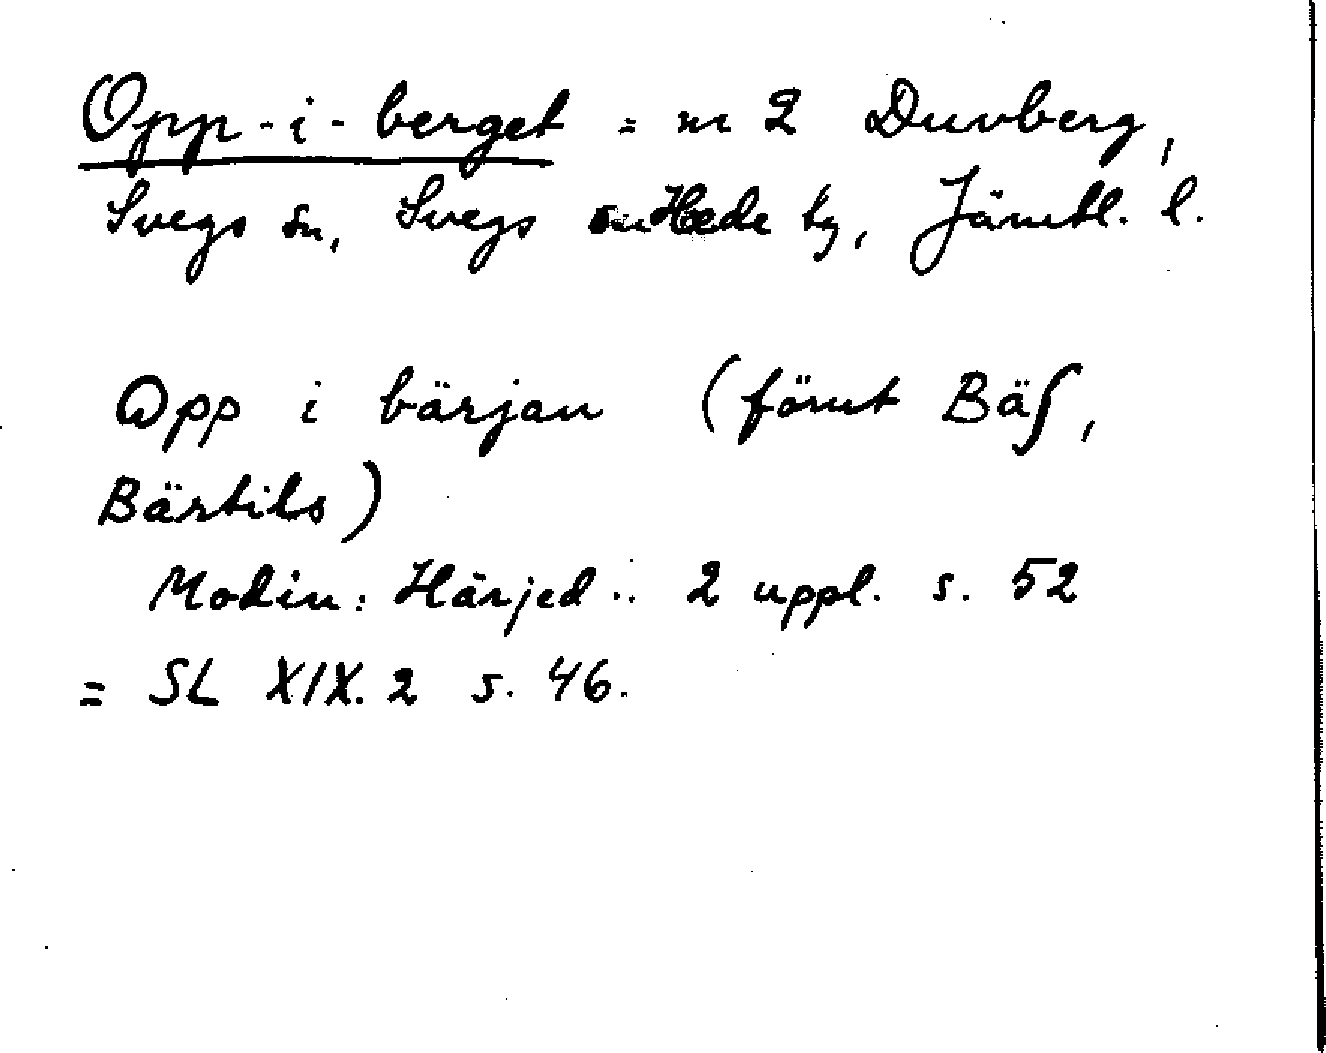 Opp-i-berget = nr 2 Duvberg,
Svegs sn, Svegs o Hede tg, Jämtl. l.
Opp i bärjan (förut Bäʃ,
Bärtils)
Modin: Härjed .. 2 uppl. s. 52
= SL XIX. 2 s. 46.